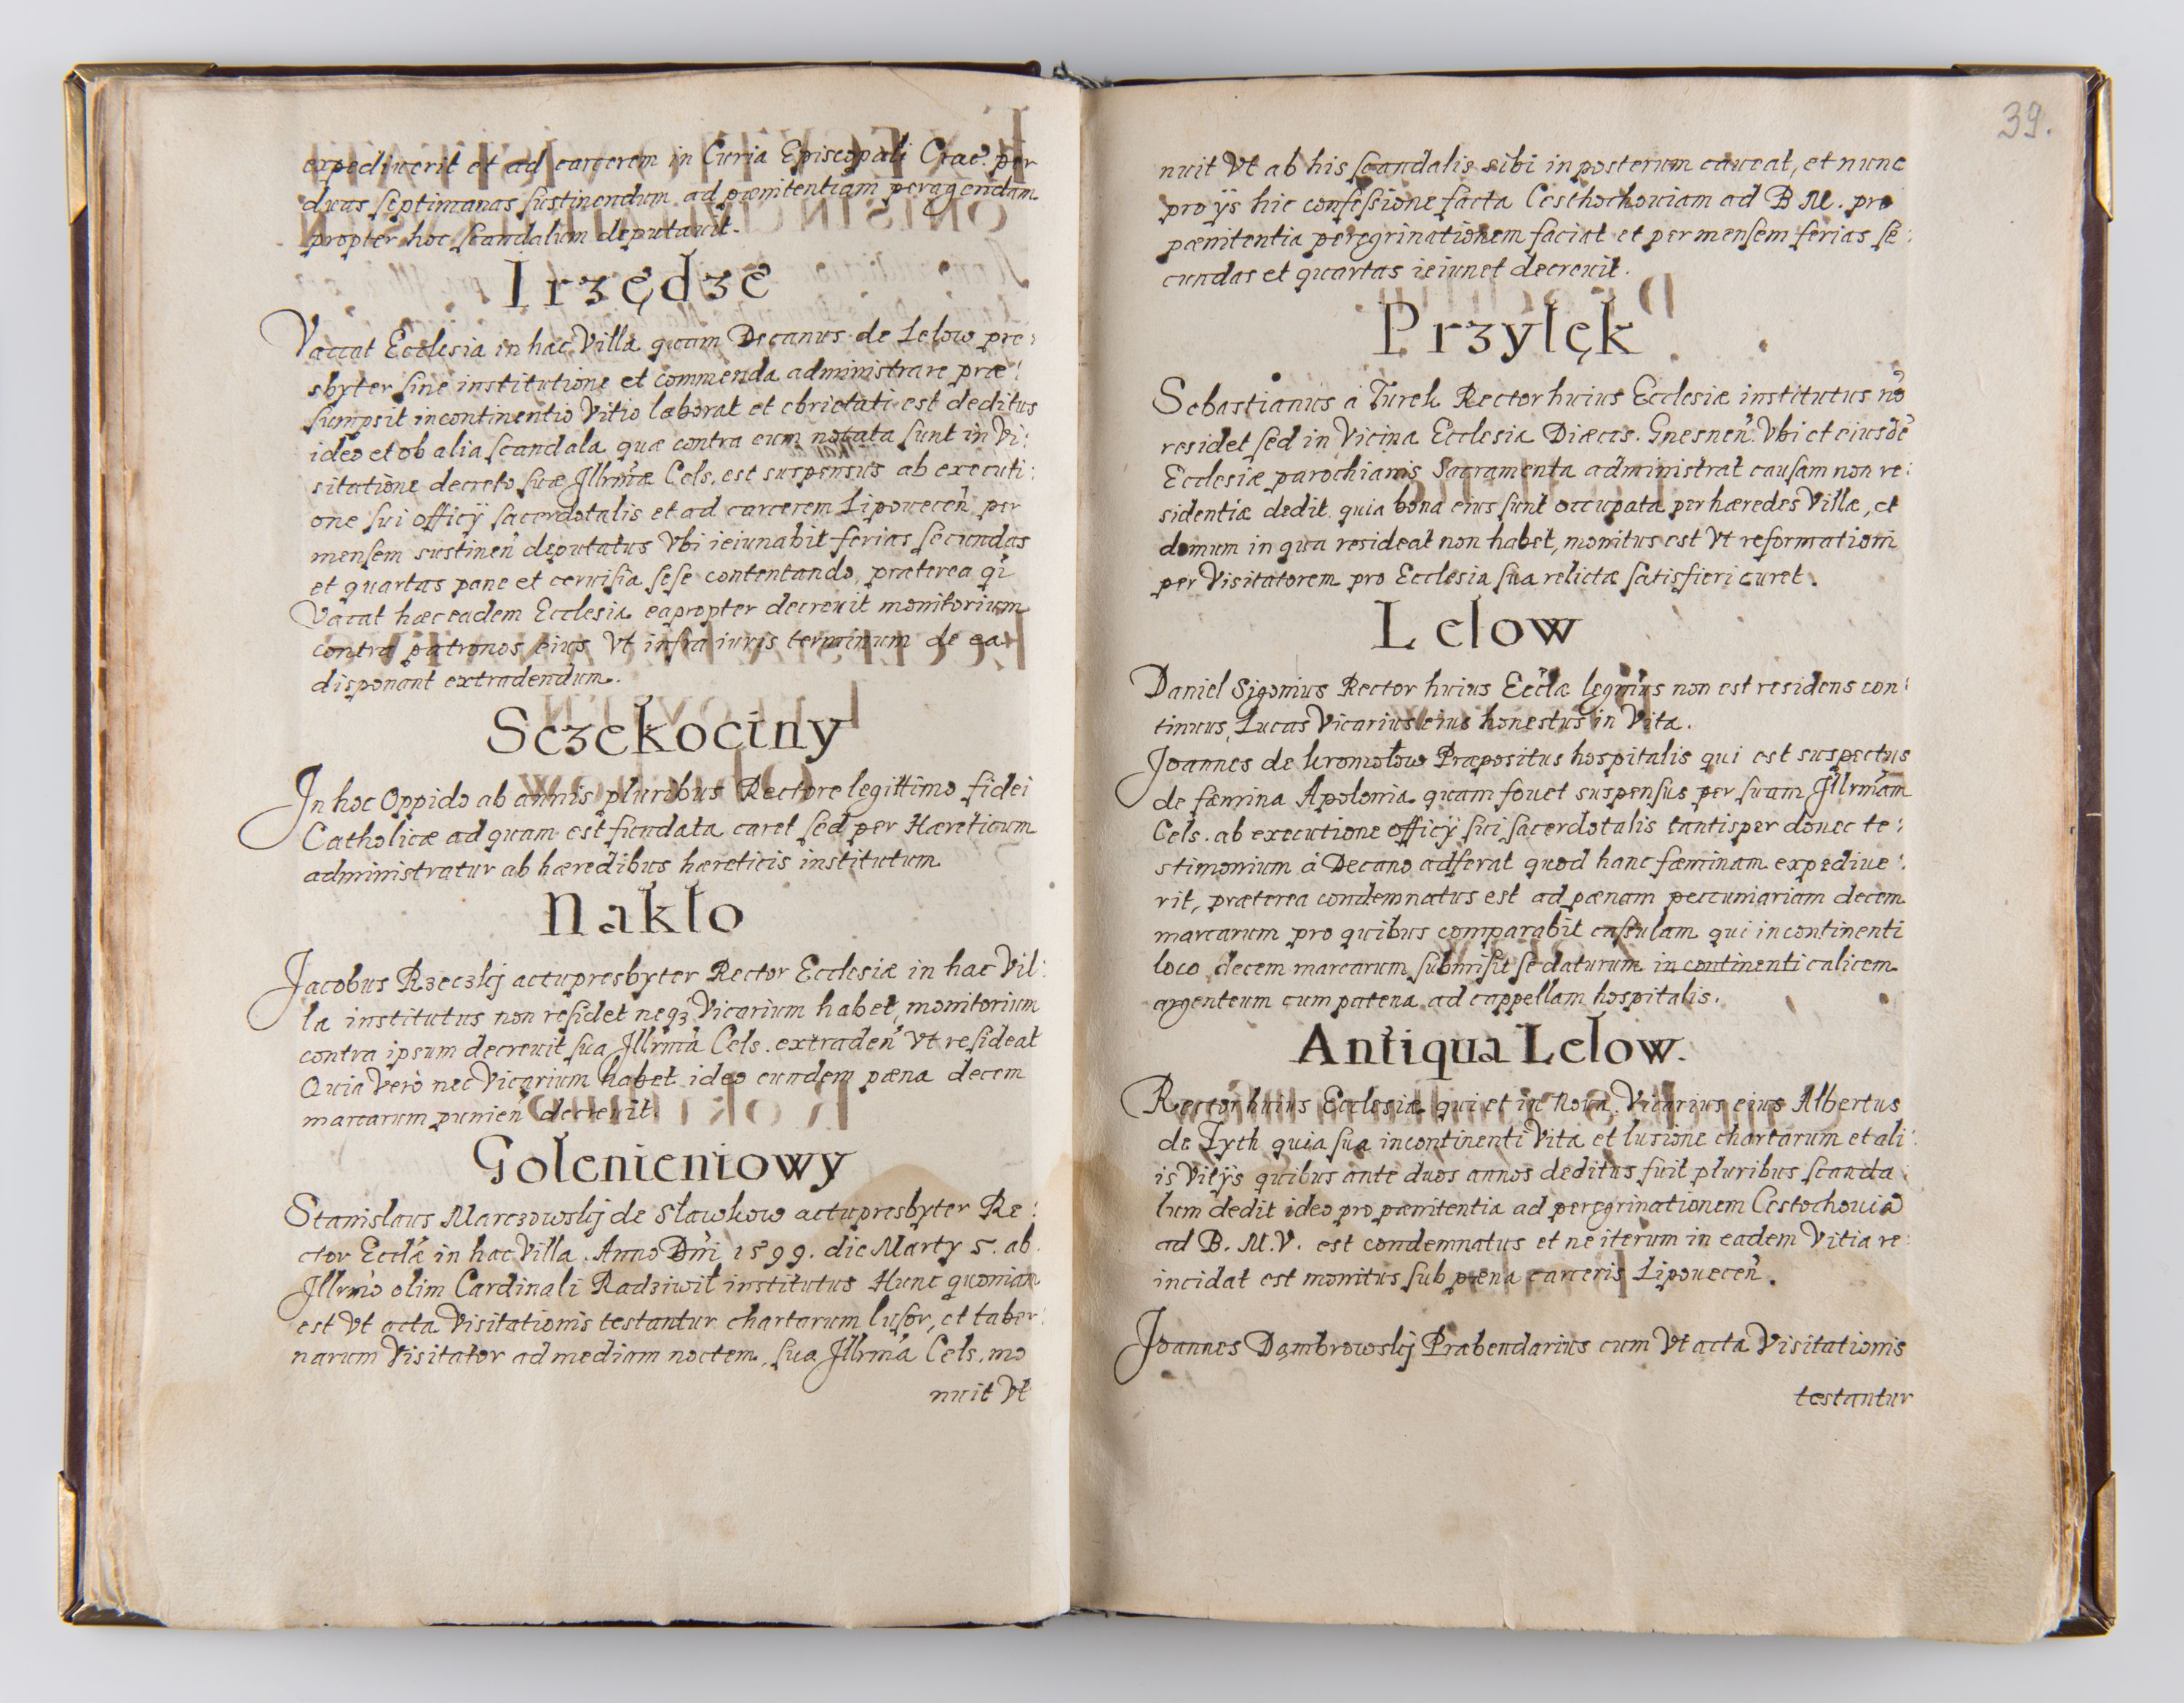 expediuerit et ad carcerem in Curia Episcopali Crac. per
duas septimanas sustinendum ad pœnitentiam peragendam
propter hoc scandalum deputauit.
Irzędze
Vaccat Ecclesia in hac Villa quam Decanus de Lelow pre:
sbyter sine institutione et commenda administrare præ:
sumpsit incontinentio Vitio laborat et ebrietati est deditus
ideo et ob alia scandala quæ contra eum notata sunt in Vi:
sitatione decreto suæ Jllrmæ Cels. est suspensus ab executi:
one sui officÿ sacerdotalis et ad carcerem Lipouecen̄ per
mensem sustinen̄ deputatus Vbi ieiunabit ferias secundas
et quartas pane et ceruisia sese contentando, præterea qi
Vacat hæc eadem Ecclesia eapropter decreuit monitorium
contra patronos eius Vt infra iuris terminum de ea
disponant extradendum.
Sczekociny
Jn hoc Oppido ab annis pluribus Rectore legittimo fidei
Catholicæ ad quam est fundata caret sed per Hæreticum
administratur ab hæredibus hæreticis institutum
Nakło
Jacobus Rzeczkj actu presbyter Rector Ecclesiæ in hac Vil:
la institutus non residet neqȝ Vicarium habet, monitorium
contra ipsum decreuit sua Jllrma Cels. extraden̄ Vt resideat
Quia Verò nec Vicarium habet ideo eundem pœna decem
marcarum punien̄ decreuit.
Golenieniowy
Stanislaus Marczowskj de Sławkow actu presbyter Re:
ctor Eccłæ in hac Villa Anno Dn̄i 1599. die Martÿ 5. ab
Jllrmo olim Cardinali Radziwił institutus Hunc quoniam
est Vt acta Visitationis testantur chartarum lusor, et taber:
narum Visitator ad mediam noctem, sua Jllrma Cels. mo
nuit Vt
39.
nuit Vt ab his scandalis sibi in posterum caueat, et nunc
pro ÿs hic confessione facta Cesthochouiam ad B M. pro
pœnitentia peregrinationem faciat et per mensem ferias se:
cundas et quartas ieiunet decreuit.
Przyłęk
Sebastianus a Turek Rector huius Ecclesiæ institutus nō
residet sed in Vicina Ecclesia Diæces. Gnesnen̄. Vbi et eiusdē
Ecclesiæ parochianis Sacramenta administrat causam non re:
sidentiæ dedit quia bona eius sunt occupata per hæredes Villæ, et
domum in qua resideat non habet, monitus est Vt reformationi
per Visitatorem pro Ecclesia sua relictæ satisfieri curet.
Lelow
Daniel Sigonius Rector huius Eccłæ legmus non est residens con:
tinuus, Lucas Vicarius eius honestus in Vita.
Joannes de kromołow Præpositus hospitalis qui est suspectus
de fæmina Apolonia quam fouet suspensus per suam Jllrmam
Cels. ab executione officÿ sui sacerdotalis tantisper donec te:
stimonium à Decano adferat quod hanc fæminam expediue:
rit, præterea condemnatus est ad pœnam peccuniariam decem
marcarum pro quibus comparabit casulam qui incontinenti
loco decem marcarum submisit se daturum in continenti calicem
argenteum cum patena ad cappellam hospitalis.
Antiqua Lelow.
Rector huius Ecclesiæ qui et in Noua. Vicarius eius Albertus
de Zyth quia sua incontinenti Vita et lusione chartarum et ali:
is Vitÿs quibus ante duos annos deditus fuit pluribus scanda:
lum dedit ideo pro pœnitentia ad peregrinationem Cestochouiā
ad B. M. V. est condemnatus et ne iterum in eadem Vitia re:
incidat est monitus sub pœna carceris Lipouecen̄.
Joannes Dąmbrowskj Præbendarius cum Vt acta Visitationis
testantur